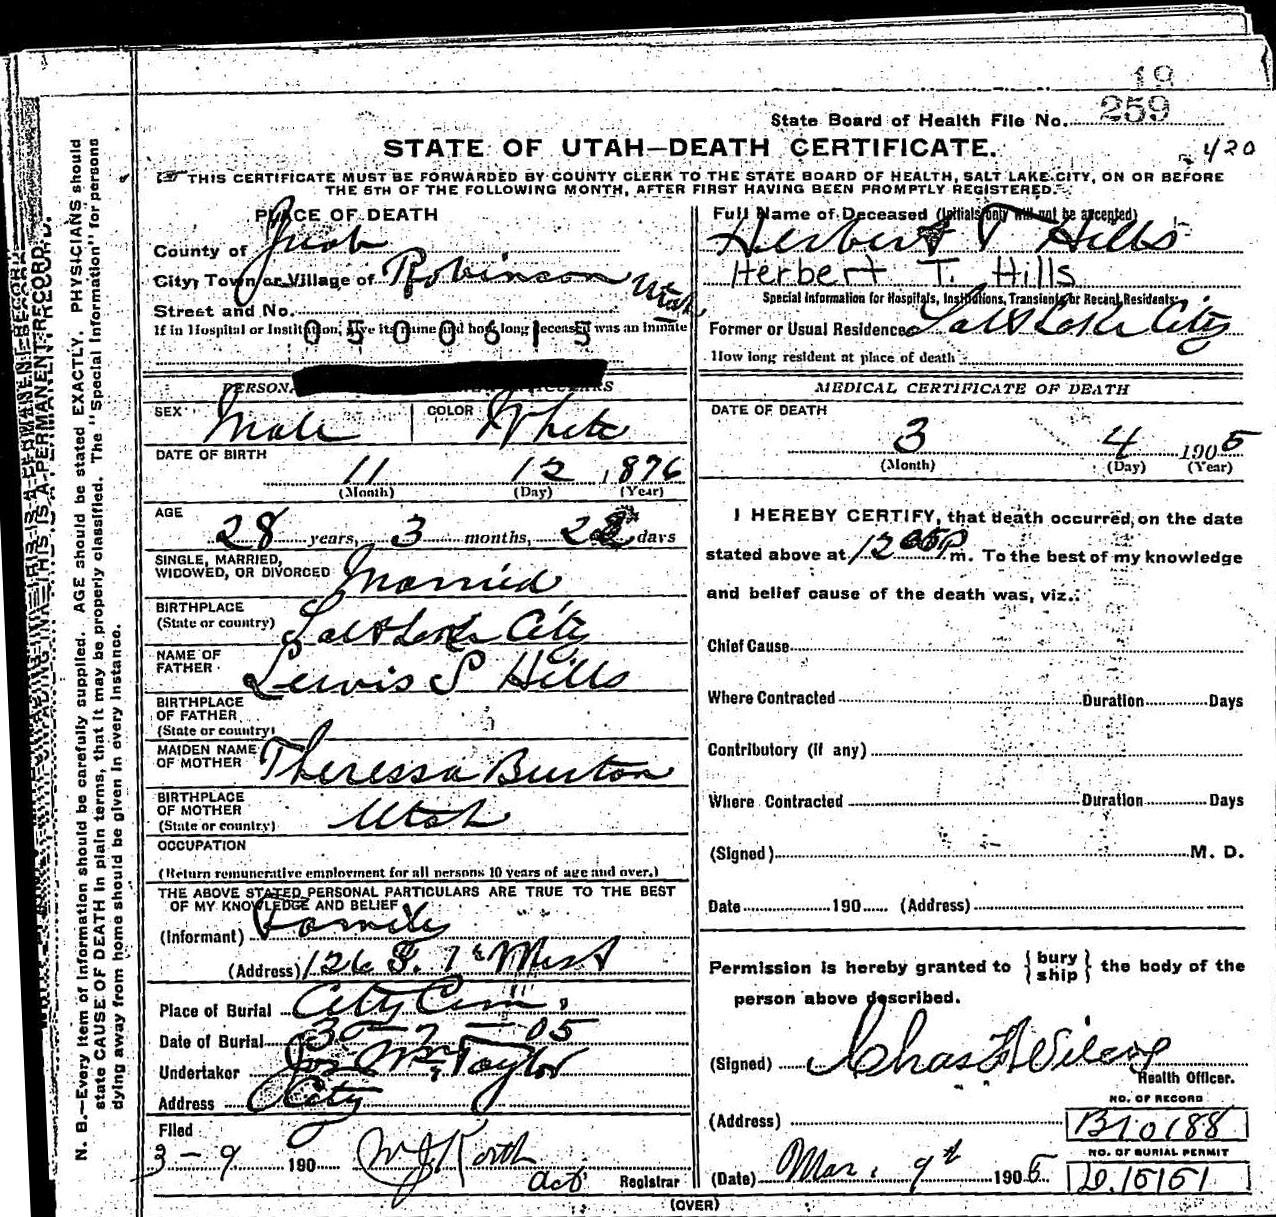 19
259
State Board of Health File No.
STATE OF UTAH—DEATH CERTIFICATE.
420
THIS CERTIFICATE MUST BE FORWARDED BY COUNTY CLERK TO THE STATE BOARD OF HEALTH, SALT LAKE CITY, ON OR BEFORE
THE 5TH OF THE FOLLOWING MONTH, AFTER FIRST HAVING BEEN PROMPTLY REGISTERED.
PLACE OF DEATH
County of Juab
City, Town or Village of Robinson Utah
Street and No.
If in Hospital or Institution, give its name and how long deceased was an inmate
0500615
Full Name of Deceased (Initials only will not be accepted)
Herbert T Hills
Herbert T. Hills
Special Information for Hospitals, Institutions, Transients or Recent Residents
Former or Usual Residence Salt Lake City
How long resident at place of death
PERSON
SEX Male COLOR White
DATE OF BIRTH
11 12 1876
(Month) (Day) (Year)
AGE
28 years, 3 months, 22 days
SINGLE, MARRIED,
WIDOWED, OR DIVORCED Married
BIRTHPLACE
(State or country) Salt Lake City
NAME OF
FATHER Lewis S Hills
BIRTHPLACE
OF FATHER
(State or country)
MAIDEN NAME
OF MOTHER Theressa Burton
BIRTHPLACE
OF MOTHER
(State or country) Utah
OCCUPATION
(Return remunerative employment for all persons 10 years of age and over.)
THE ABOVE STATED PERSONAL PARTICULARS ARE TRUE TO THE BEST
OF MY KNOWLEDGE AND BELIEF
(Informant) Family
(Address) 126 S. 1st West
Place of Burial City Cem.
Date of Burial 3 - 7 - 05
Undertaker Jos Wm Taylor
Address City
Filed
3 - 9 190 Registrar
MEDICAL CERTIFICATE OF DEATH
DATE OF DEATH
3 4 1905
(Month) (Day) (Year)
I HEREBY CERTIFY, that death occurred, on the date
stated above at 12 05 P m. To the best of my knowledge
and belief cause of the death was, viz.:
Chief Cause
Where Contracted Duration Days
Contributory (if any)
Where Contracted Duration Days
(Signed) M. D.
Date 190 (Address)
Permission is hereby granted to {bury
ship} the body of the
person above described.
(Signed) Chas F Wilcox
Health Officer.
NO. OF RECORD
(Address) B10188
NO. OF BURIAL PERMIT
(Date) Mar. 9th 1905 D.15151
(OVER)
N. B.—Every item of information should be carefully supplied. AGE should be stated EXACTLY. PHYSICIANS should
state CAUSE OF DEATH in plain terms, that it may be properly classified. The "Special Information" for persons
dying away from home should be given in every instance.